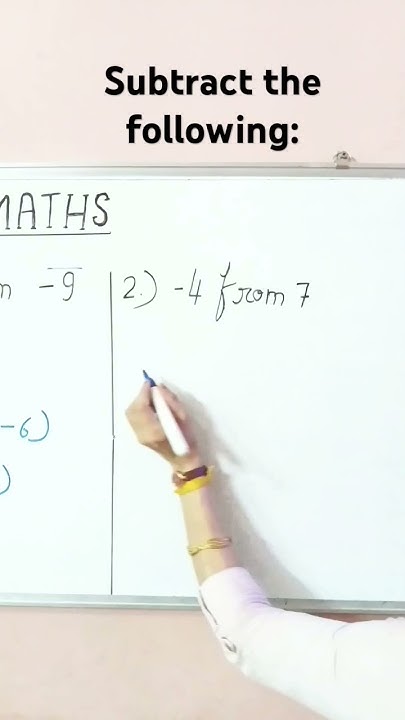 Subtract the
following:
MATHS
-9
2.) -4 from 7
-6)
)